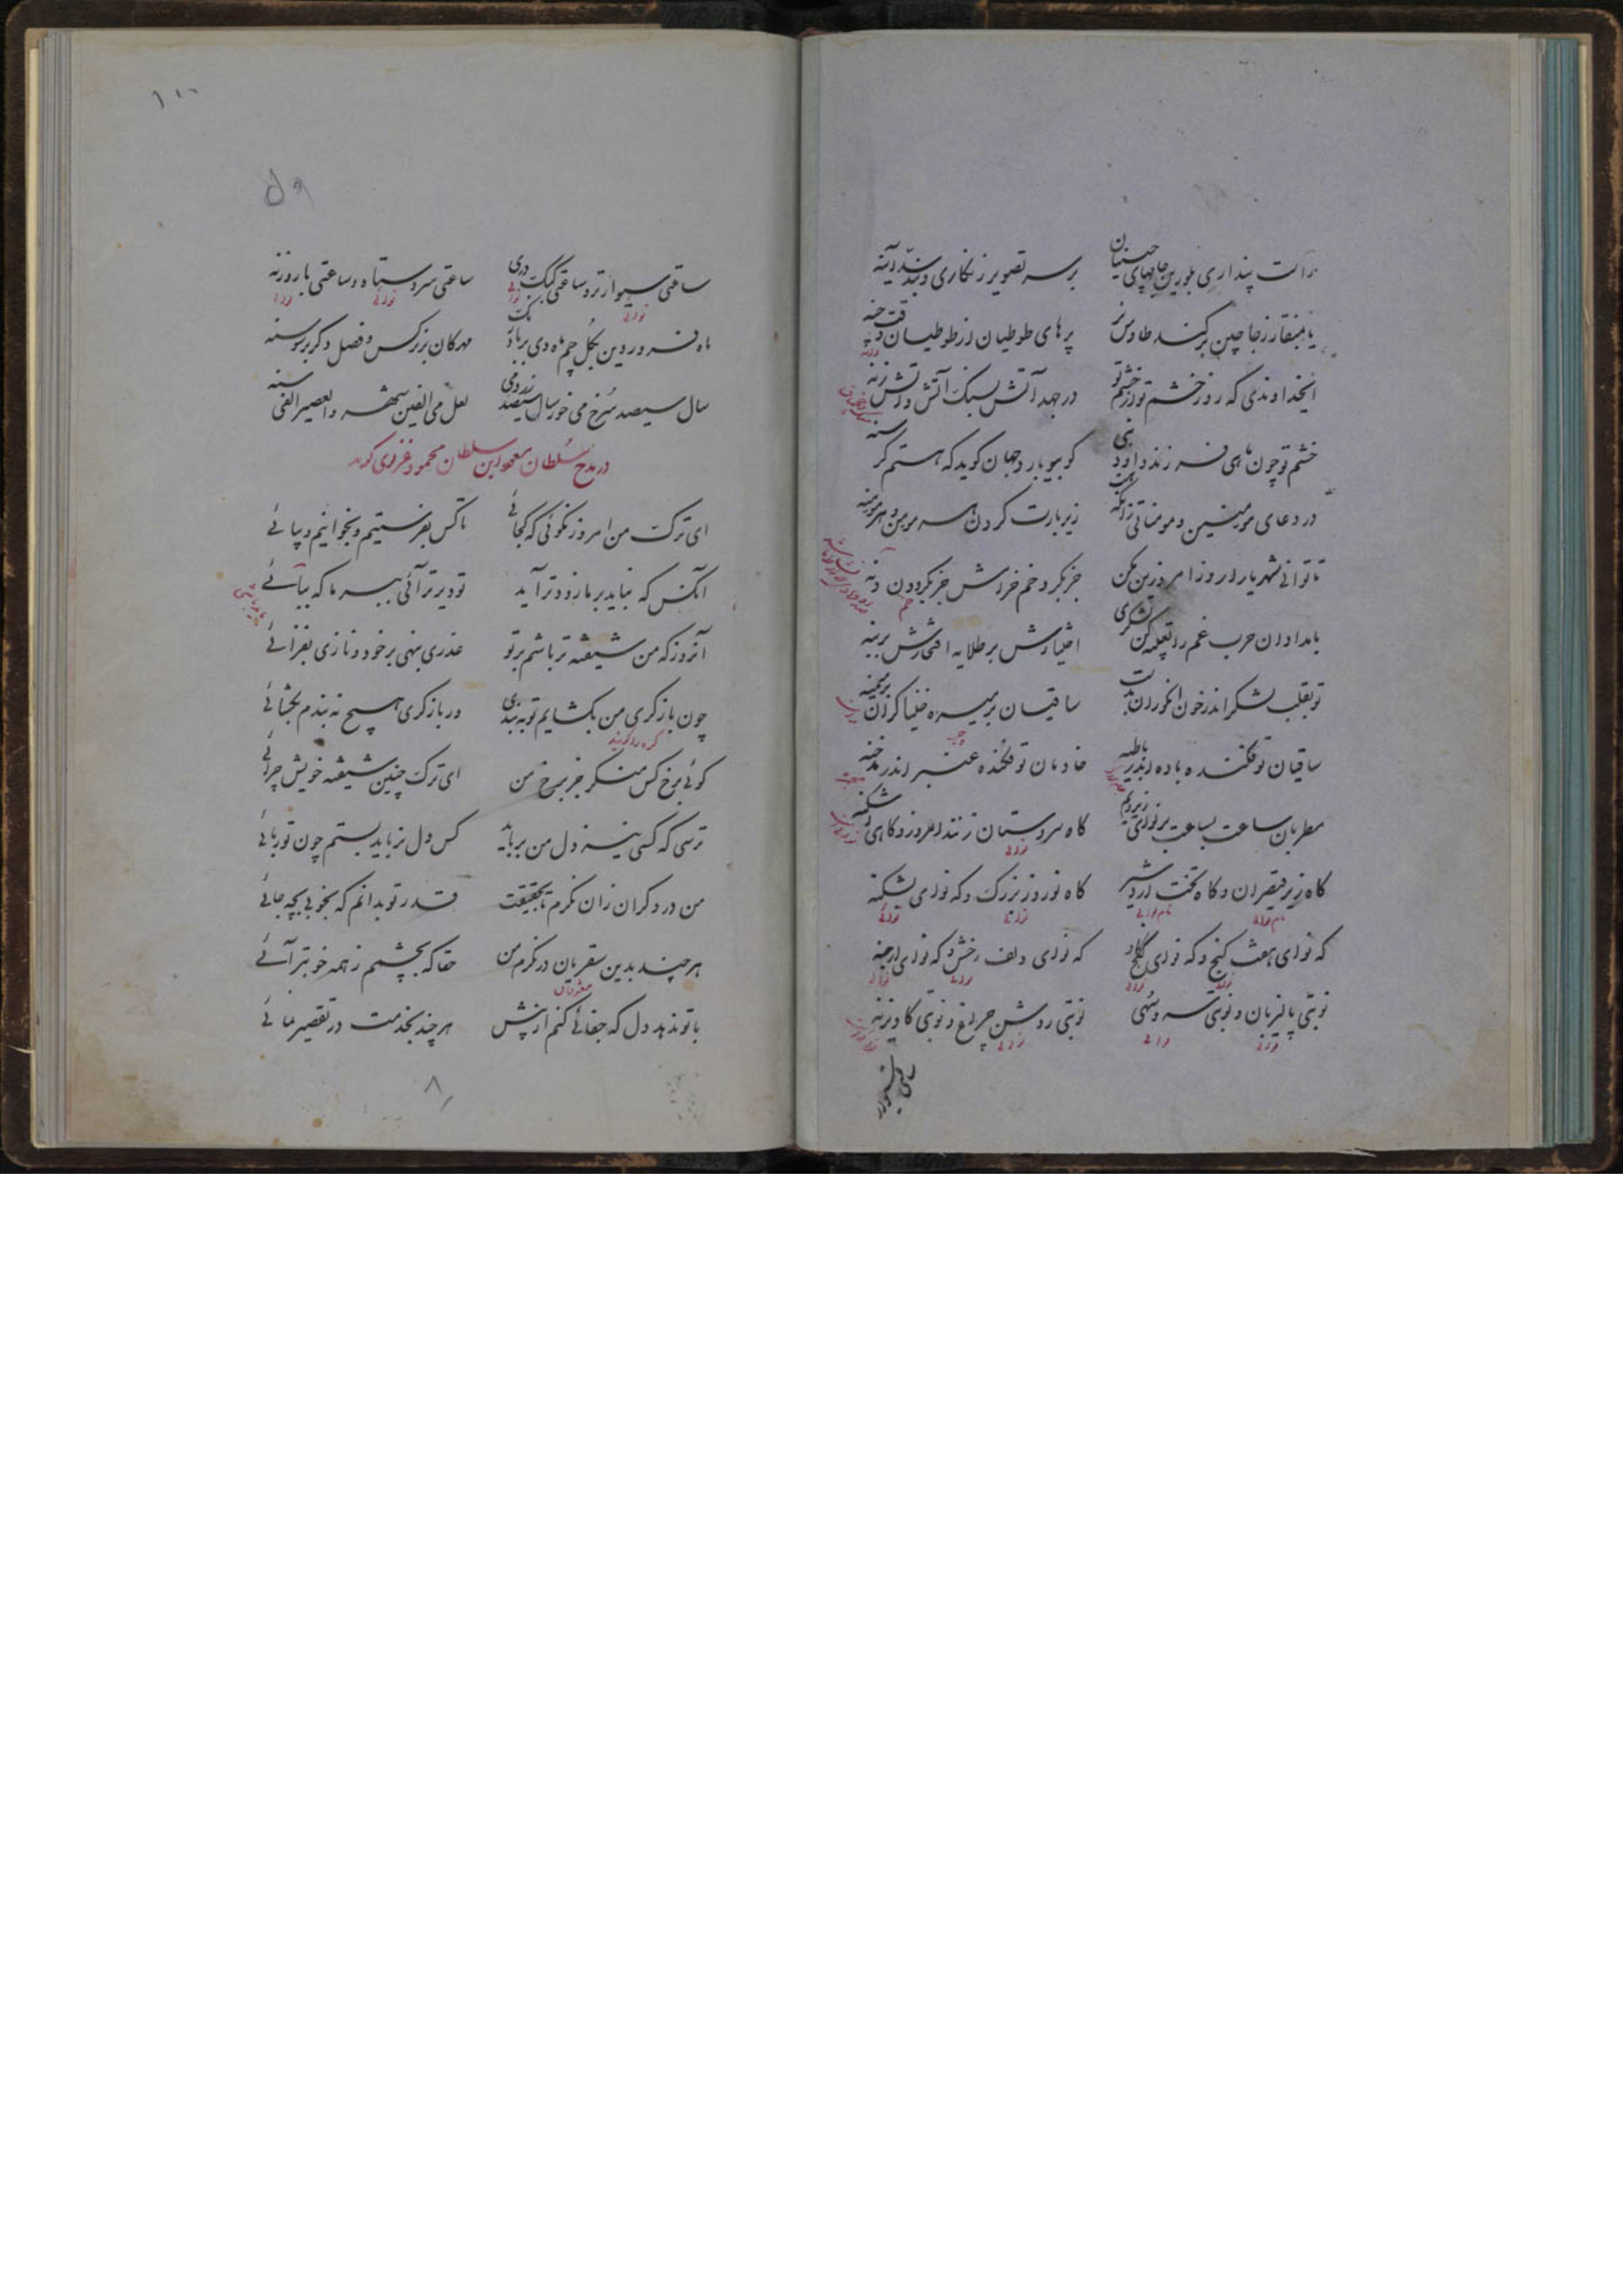 راست پنداری بلورین جامهای چینیان
بر سر تصویر زنگاری و بنند آینه
یا بمنقار زجاجین برکند طاوس نر
پرهای طوطیان از طوطیان وقت چنه
ایخداوندی که روز خشم تو از خشم تو
در جهد آتش بسنگ آتش و آتش زنه
خشم تو چون ماهی فرزند داود نبی
کو بیوبارد جهان گوید که هستم گرسنه
در دعای مومنین و مومناتی زانکه هست
زیر بارت گردن هر مومن و هر مومنه
تا توانی شهریارا روز امروزین مکن
جز بگرد خم خرامش جز بگرد دن دنه
بامدادان حرب غم را تعبیه کن لشکری
اختیارش بر طلایه افتخارش بر بنه
تو بقلب لشکر اندر خون انگوران بدست
ساقیان بر میسره خنیاگران بر میمنه
ساقیان تو فکنده باده اندر باطیه
خادمان تو فکنده عنبر اندر مدخنه
مطربان ساعت بساعت بر نوای زیر و بم
گاه سروستان زنند امروز و گاهی اشکنه
گاه زیر قیصران و گاه تخت اردشیر
گاه نوروز بزرگ و که نوای بشکنه
که نوای هفت گنج و که نوای گنج گاو
که نوای دیف رخش و که نوای ارجنه
نوبتی پالیزبان و نوبتی سرو سهی
نوبتی روشن چراغ و نوبتی کاویزنه
۱۰۰
ساعتی سیوارتیر و ساعتی کبک دری
ساعتی سروستاه و ساعتی باروزنه
ماه فروردین بگل چم ماه دی بر باد رنگ
مهرکان بر نرگس و فصل دگر بر سوسنه
سال سیصد سرخ می خور سال سیصد زرد می
لعل می الفین شهر والعصیر الفی سنه
در مدح سلطان مسعود ابن سلطان محمود غزنوی گوید
ای ترک من امروز نگوئی که کجائی
تا کس بفرستیم و بخوانیم و بیائی
آنکس که نباید بر ما زودتر آید
تو دیرتر آئی ببر ما که ببائی
آنروز که من شیفته تر باشم بر تو
عذری بنهی بر خود و نازی بفزائی
چون بازکری من بگشایم تو ببندی
ور بازکری هیچ نبندم بگشائی
گوئی برخ کس منگر جز برخ من
ای ترک چنین شیفته خویش چرائی
ترسی که کسی نیز دل من برباید
کس دل نرباید بستم چون تو ربائی
من در دگران زان نگرم تا بحقیقت
قدر تو بدانم که بخوبی بچه جائی
هر چند بدین سقریان درنگرم من
حقا که بچشمم ز همه خوبتر آئی
با تو ندهد دل که جفائی کنم از پیش
هر چند بخدمت در تقصیر نمائی